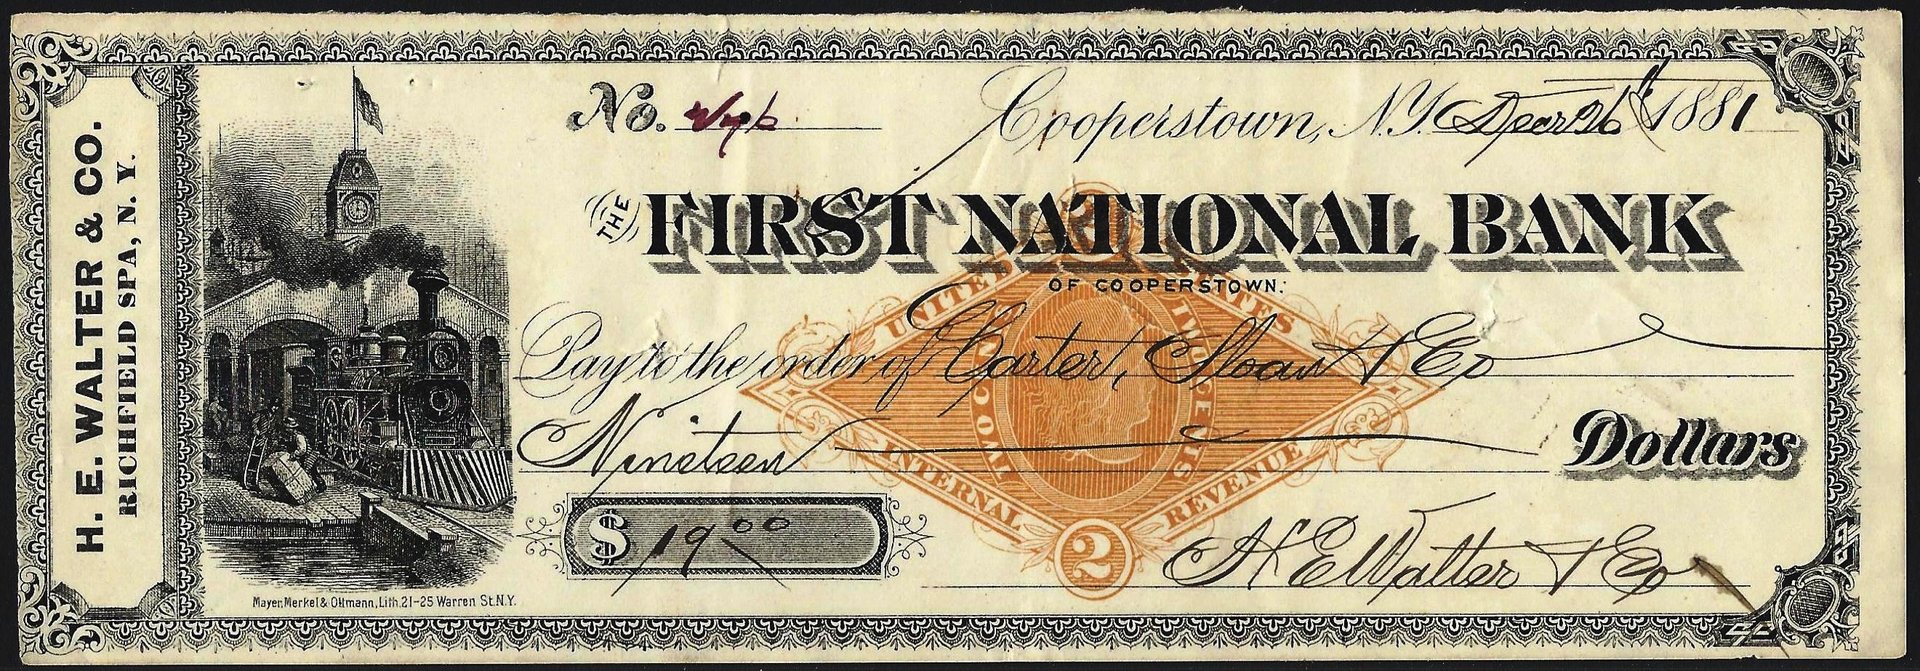 H. E. WALTER & CO.
RICHFIELD SPA, N. Y.
No.
Cooperstown, N.Y. 26 1881
THE FIRST NATIONAL BANK
OF COOPERSTOWN.
UNITED STATES
INTERNAL REVENUE
TWO CENTS
2
Pay to the order of Carter, Sloan & Co
Nineteen Dollars
$ 19 00
H E Walter & Co
Mayer, Merkel & Ottmann, Lith. 21-25 Warren St. N.Y.